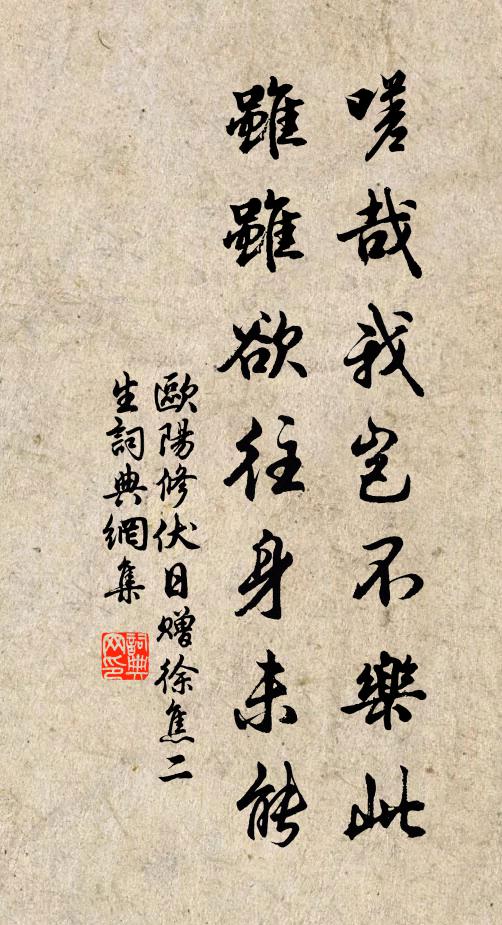 嗟哉我豈不樂此
雖雖欲往身未能
歐陽修伏日贈徐焦二
生詞典網集
詞典
网印